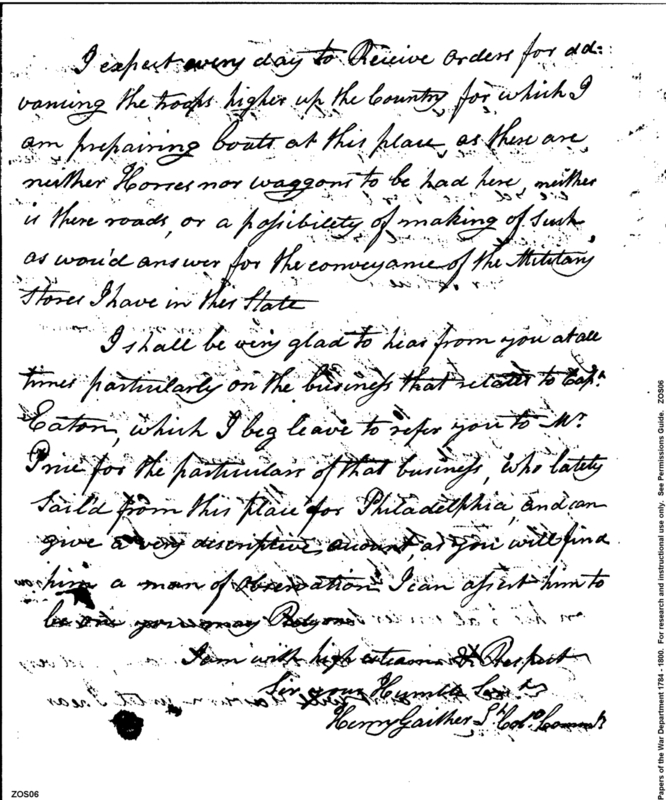 I expect every day to Receive orders for ad=
vancing the troops higher up the Country, for which I
am prepairing boats at this place, as there are
neither Horses nor waggons to be had here, neither
is there roads, or a possibility of making of Such
as wou'd answer for the conveyance of the Military
Stores I have in this State
I shall be very glad to hear from you at all
times particularly on the business that relates to Capt.
Eaton, which I beg leave to refer you to Mr.
Price for the particulars of that business, who lately
Sail'd from this place for Philadelphia, and can
give a very descriptive account, as you will find
him a man of observation I can assert him to
be one you may Rely on
I am with high esteem & Respect
Sir your Humble Servt.
Henry Gaither Lt. Colo. Commdt.
ZOS06
Papers of the War Department 1784 - 1800. For research and instructional use only. See Permissions Guide. ZOS06